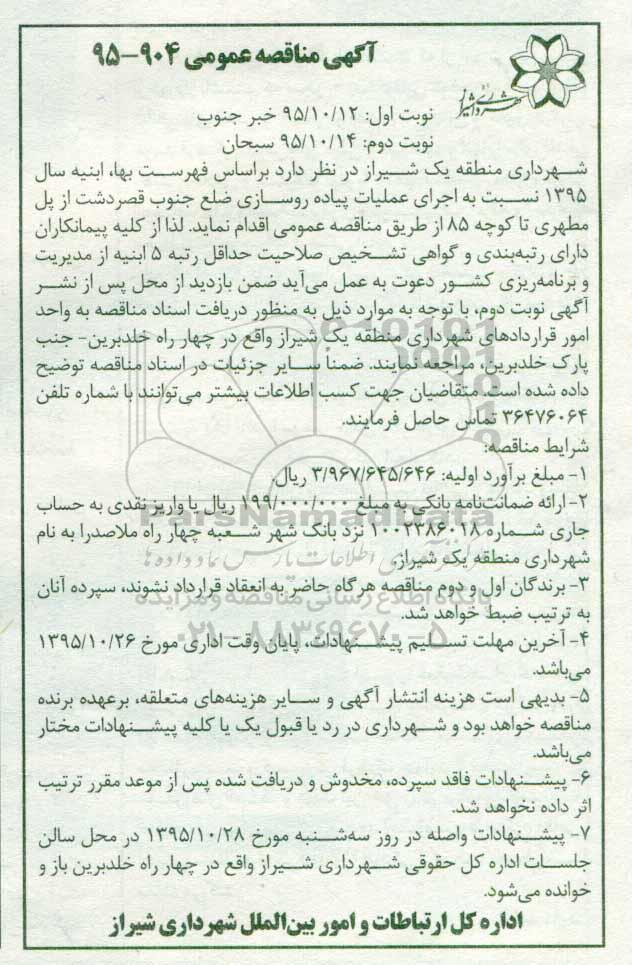 آگهی مناقصه عمومی ۹۰۴-۹۵
شهرداری شیراز
نوبت اول: ۹۵/۱۰/۱۲ خبر جنوب
نوبت دوم: ۹۵/۱۰/۱۴ سبحان
شهرداری منطقه یک شیراز در نظر دارد براساس فهرست بها، ابنیه سال
۱۳۹۵ نسبت به اجرای عملیات پیاده روسازی ضلع جنوب قصردشت از پل
مطهری تا کوچه ۸۵ از طریق مناقصه عمومی اقدام نماید. لذا از کلیه پیمانکاران
دارای رتبه‌بندی و گواهی تشخیص صلاحیت حداقل رتبه ۵ ابنیه از مدیریت
و برنامه‌ریزی کشور دعوت به عمل می‌آید ضمن بازدید از محل پس از نشر
آگهی نوبت دوم، با توجه به موارد ذیل به منظور دریافت اسناد مناقصه به واحد
امور قراردادهای شهرداری منطقه یک شیراز واقع در چهار راه خلدبرین- جنب
پارک خلدبرین، مراجعه نمایند. ضمناً سایر جزئیات در اسناد مناقصه توضیح
داده شده است. متقاضیان جهت کسب اطلاعات بیشتر می‌توانند با شماره تلفن
۳۶۴۷۶۰۶۴ تماس حاصل فرمایند.
شرایط مناقصه:
۱- مبلغ برآورد اولیه: ۳/۹۶۷/۶۴۵/۶۴۶ ریال.
۲- ارائه ضمانت‌نامه بانکی به مبلغ ۱۹۹/۰۰۰/۰۰۰ ریال یا واریز نقدی به حساب
جاری شماره ۱۰۰۲۳۸۶۰۱۸ نزد بانک شهر شعبه چهار راه ملاصدرا به نام
شهرداری منطقه یک شیراز.
۳- برندگان اول و دوم مناقصه هرگاه حاضر به انعقاد قرارداد نشوند، سپرده آنان
به ترتیب ضبط خواهد شد.
۴- آخرین مهلت تسلیم پیشنهادات، پایان وقت اداری مورخ ۱۳۹۵/۱۰/۲۶
می‌باشد.
۵- بدیهی است هزینه انتشار آگهی و سایر هزینه‌های متعلقه، برعهده برنده
مناقصه خواهد بود و شهرداری در رد یا قبول یک یا کلیه پیشنهادات مختار
می‌باشد.
۶- پیشنهادات فاقد سپرده، مخدوش و دریافت شده پس از موعد مقرر ترتیب
اثر داده نخواهد شد.
۷- پیشنهادات واصله در روز سه‌شنبه مورخ ۱۳۹۵/۱۰/۲۸ در محل سالن
جلسات اداره کل حقوقی شهرداری شیراز واقع در چهار راه خلدبرین باز و
خوانده می‌شود.
اداره کل ارتباطات و امور بین‌الملل شهرداری شیراز
ParsNamadData
پایگاه اطلاع رسانی مناقصه و مزایده
۰۲۱-۸۸۳۴۹۶۷۰-۵